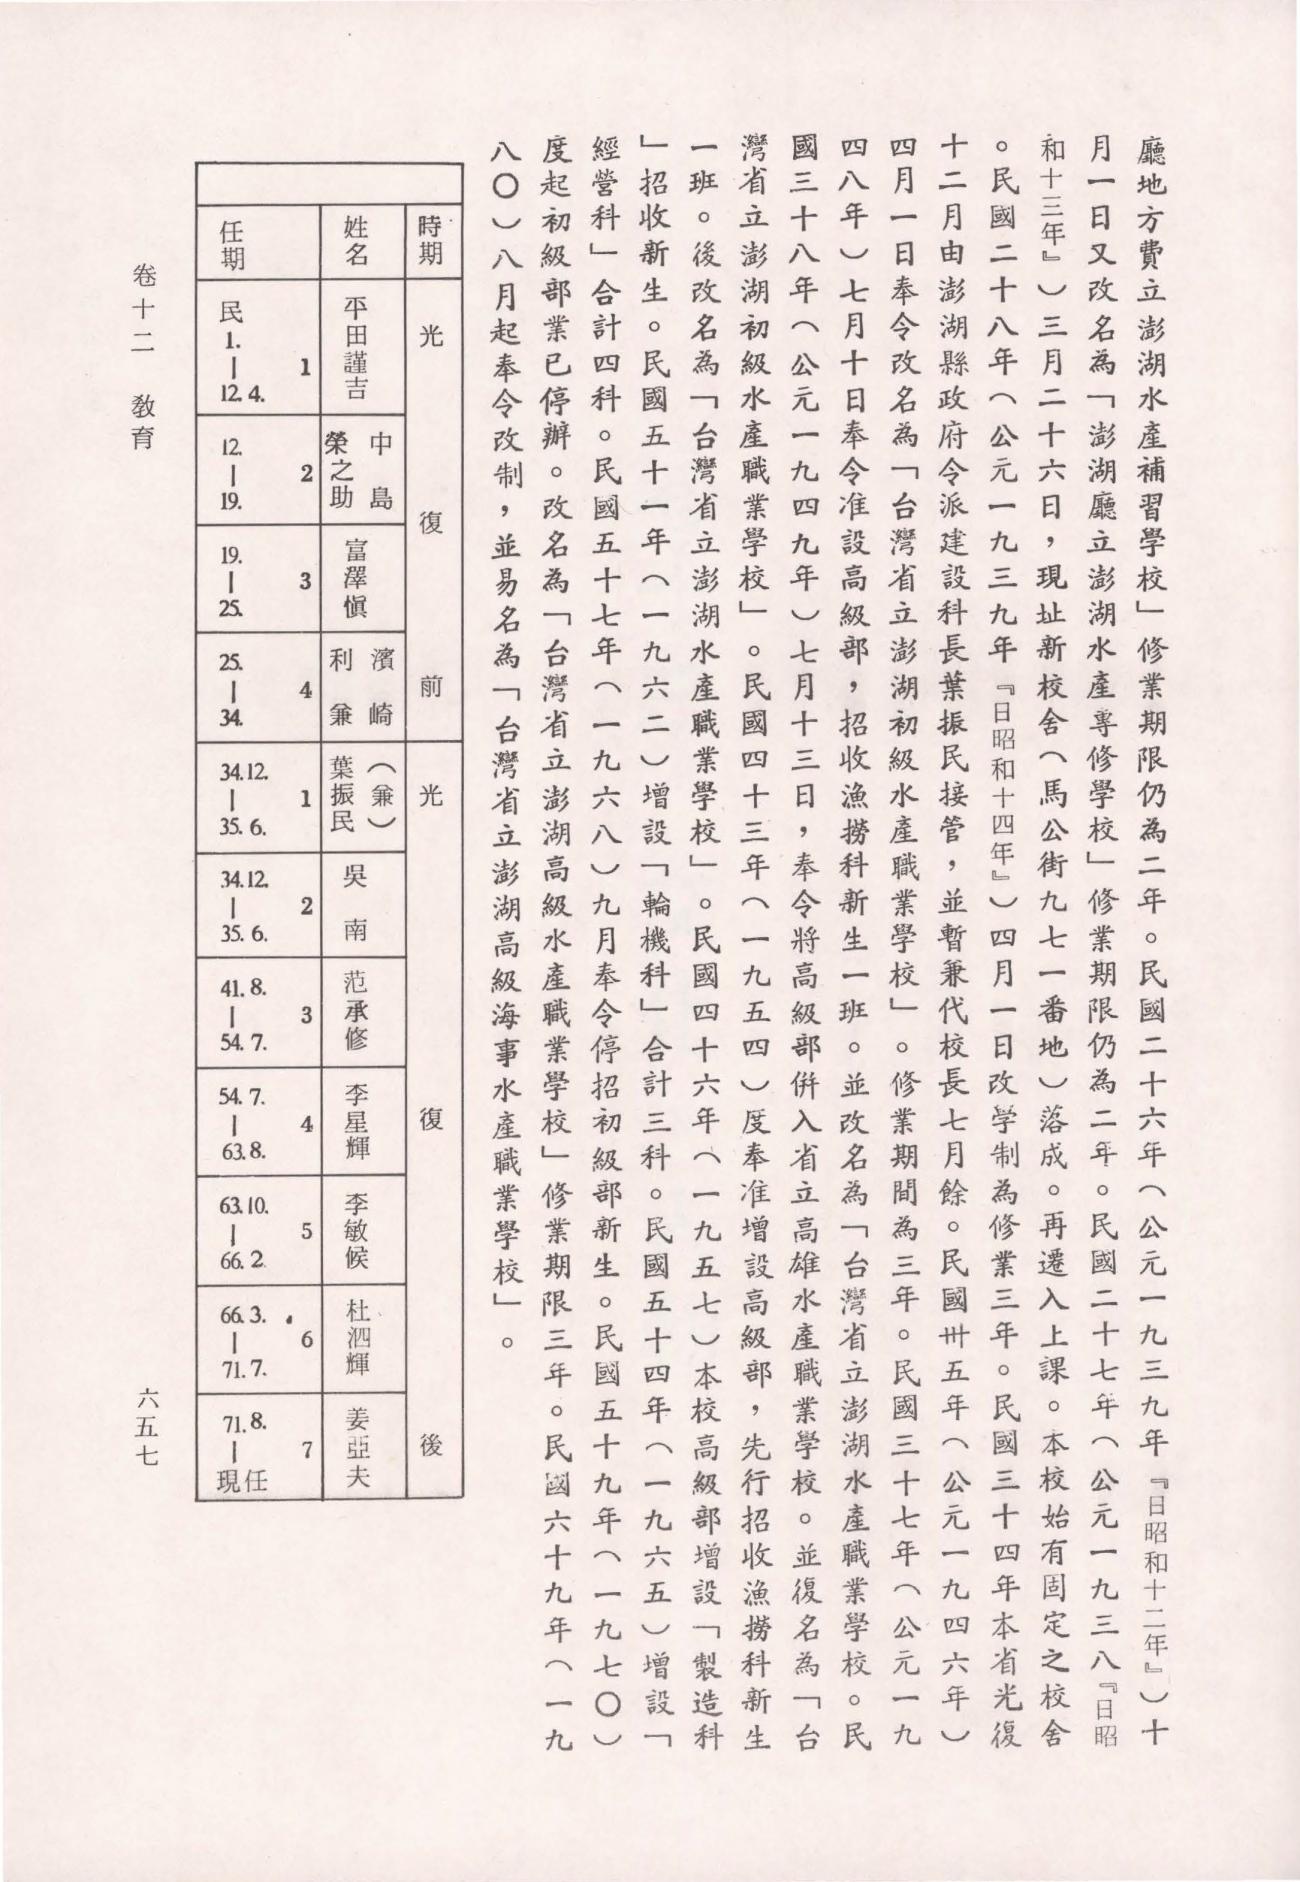 廳地方費立澎湖水產補習學校」修業期限仍為二年。民國二十六年（公元一九三九年『日昭和十二年』）十
月一日又改名為「澎湖廳立澎湖水產專修學校」修業期限仍為二年。民國二十七年（公元一九三八『日昭
和十三年』）三月二十六日，現址新校舍（馬公街九七一番地）落成。再遷入上課。本校始有固定之校舍
。民國二十八年（公元一九三九年『日昭和十四年』）四月一日改學制為修業三年。民國三十四年本省光復
十二月由澎湖縣政府令派建設科長葉振民接管，並暫兼代校長七月餘。民國卅五年（公元一九四六年）
四月一日奉令改名為「台灣省立澎湖初級水產職業學校」。修業期間為三年。民國三十七年（公元一九
四八年）七月十日奉令准設高級部，招收漁撈科新生一班。並改名為「台灣省立澎湖水產職業學校。民
國三十八年（公元一九四九年）七月十三日，奉令將高級部併入省立高雄水產職業學校。並復名為「台
灣省立澎湖初級水產職業學校」。民國四十三年（一九五四）度奉准增設高級部，先行招收漁撈科新生
一班。後改名為「台灣省立澎湖水產職業學校」。民國四十六年（一九五七）本校高級部增設「製造科
」招收新生。民國五十一年（一九六二）增設「輪機科」合計三科。民國五十四年（一九六五）增設「
經營科」合計四科。民國五十七年（一九六八）九月奉令停招初級部新生。民國五十九年（一九七〇）
度起初級部業已停辦。改名為「台灣省立澎湖高級水產職業學校」修業期限三年。民國六十九年（一九
八〇）八月起奉令改制，並易名為「台灣省立澎湖高級海事水產職業學校」。
時期 光復前 光復後
姓名 平田謹吉 中島榮之助 富澤慎 濱崎利兼 葉振民（兼） 吳南 范承修 李星輝 李敏候 杜泗輝 姜亞夫
1 2 3 4 1 2 3 4 5 6 7
任期 民1.—12.4. 12.—19. 19.—25. 25.—34. 34.12.—35.6. 34.12.—35.6. 41.8.—54.7. 54.7.—63.8. 63.10.—66.2 66.3.—71.7. 71.8.—現任
卷十二 教育
六五七